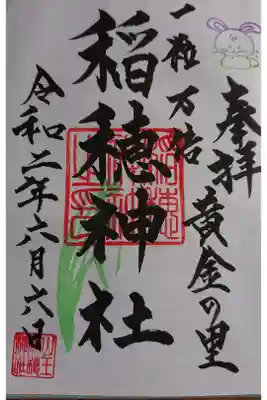 奉拝 黄金の里
一粒万倍
稲穂神社
令和二年六月六日